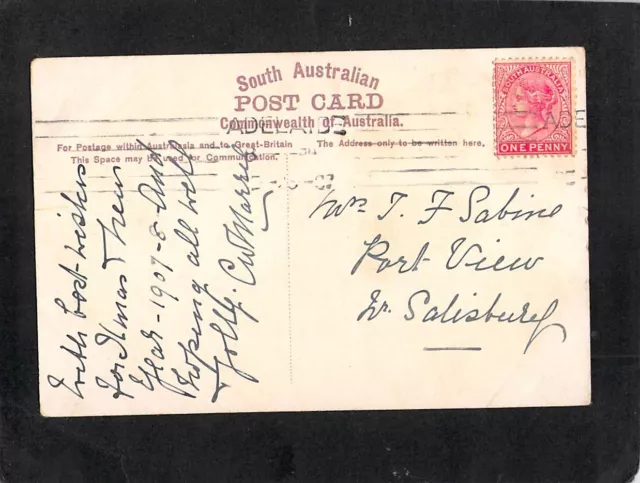 South Australian
POST CARD
Commonwealth of Australia.
For Postage within Australasia and to Great-Britain
This Space may be used for Communication.
The Address only to be written here.
ADELAIDE
SOUTH AUSTRALIA
ONE PENNY
With best wishes
for Xmas & New
Year - 1907-8 And
hoping all well
&
Mrs T. F Sabine
Port View
Nr. Salisbury